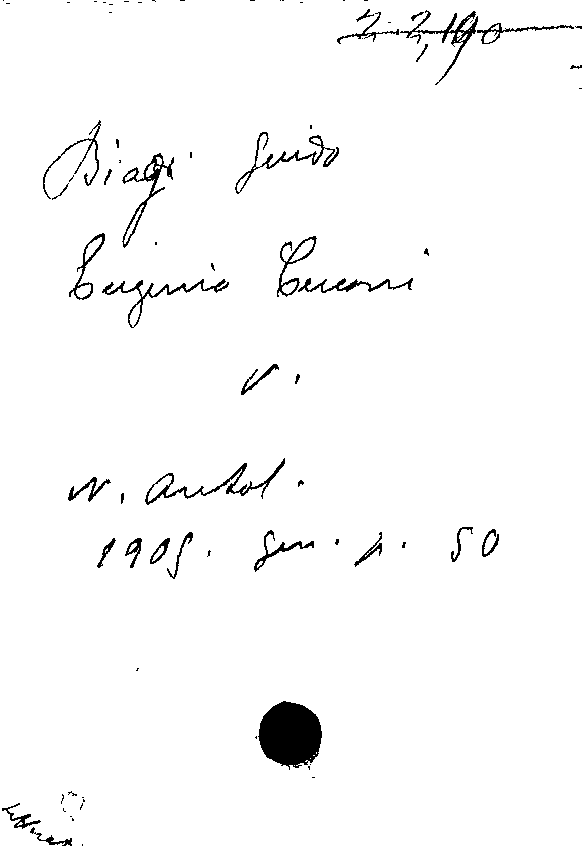 2.2,190
Biagi Guido
Eugenio Cecconi
V.
N. Antol.
1905. Gen. p. 50